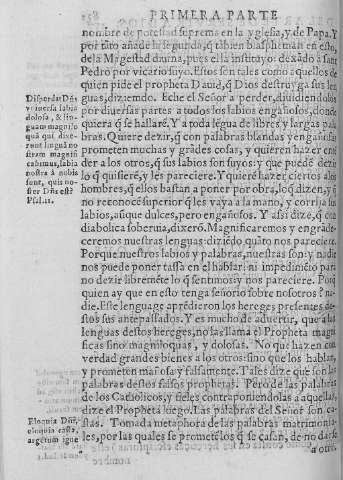 PRIMERA PARTE
nombre de potestad suprema en la yglesia, y de Papa. Y
por tāto añade la segunda, q̄ tābien blasphemarō en esto,
de la Magestad diuina, pues ella instituyo: dexādo a sant
Pedro por vicario suyo. Estos son tales como aquellos de
quien pide el propheta Dauid, q̄ Dios destruyga sus len
guas, diziendo. Eche el Señor a perder, diuidiendolos
por diuersas partes a todos los labios engañosos, donde
quiera q̄ se hallarē. Y a toda lēgua de libres y largas pala
bras. Quiere dezir, q̄ con palabras blandas y engañosas
prometen muchas y grādes cosas, y quieren hazer entē
der a los otros, q̄ sus labios son suyos: y que puedē dezir
lo q̄ quisierē, y lés pareciere. Y quierē hazer ciertos a los
hombres, q̄ ellos bastan a poner por obra, lo q̄ dizen, y q̄
no reconocē superior q̄ les vaya a la mano, y corrija sus
labios, aūque dulces, pero engañosos. Y assi dize, q̄ con
diabolica soberuia, dixerō. Magnificaremos y engrāde-
ceremos nuestras lenguas: diziēdo, quāto nos pareciere.
Porque nuestros labios y palabras, nuestras son: y nadie
nos puede poner tassa en el hablar: ni impedimēto para
no dezir libremēte lo q̄ sentimos: y nos pareciere. Porq̄
quien ay que en esto tenga señorio sobre nosotros? na-
die. Este lenguage aprēdieron los hereges presentes de-
stos sus antepassados. Y es mucho de aduertir, que a las
lenguas destos hereges, no las llama el Propheta magni
ficas sino magniloquas, y dolosas. No que hazen con
verdad grandes bienes a los otros: sino que los hablan,
y prometen mañosa y falsamente. Tales dize que son las
palabras destos falsos prophetas. Pero de las palabras
de los Catholicos, y fieles contraponiendolas a aquellas,
dize el Propheta luego. Las palabras del Señor son ca-
stas. Tomada metaphora de las palabras matrimonia-
les, por las quales se prometēlos q̄ se casan, de no darse
a otro
Disperdat Dñs
vniuersa labia
dolosa, & lin-
guam magnilo
quā qui dixe-
runt linguā no
stram magnifi
cabimus, labia
nostra à nobis
sunt, quis no-
ster Dñs est?
Psal. 11.
Eloquia Dñi,
eloquia casta,
argētum igne